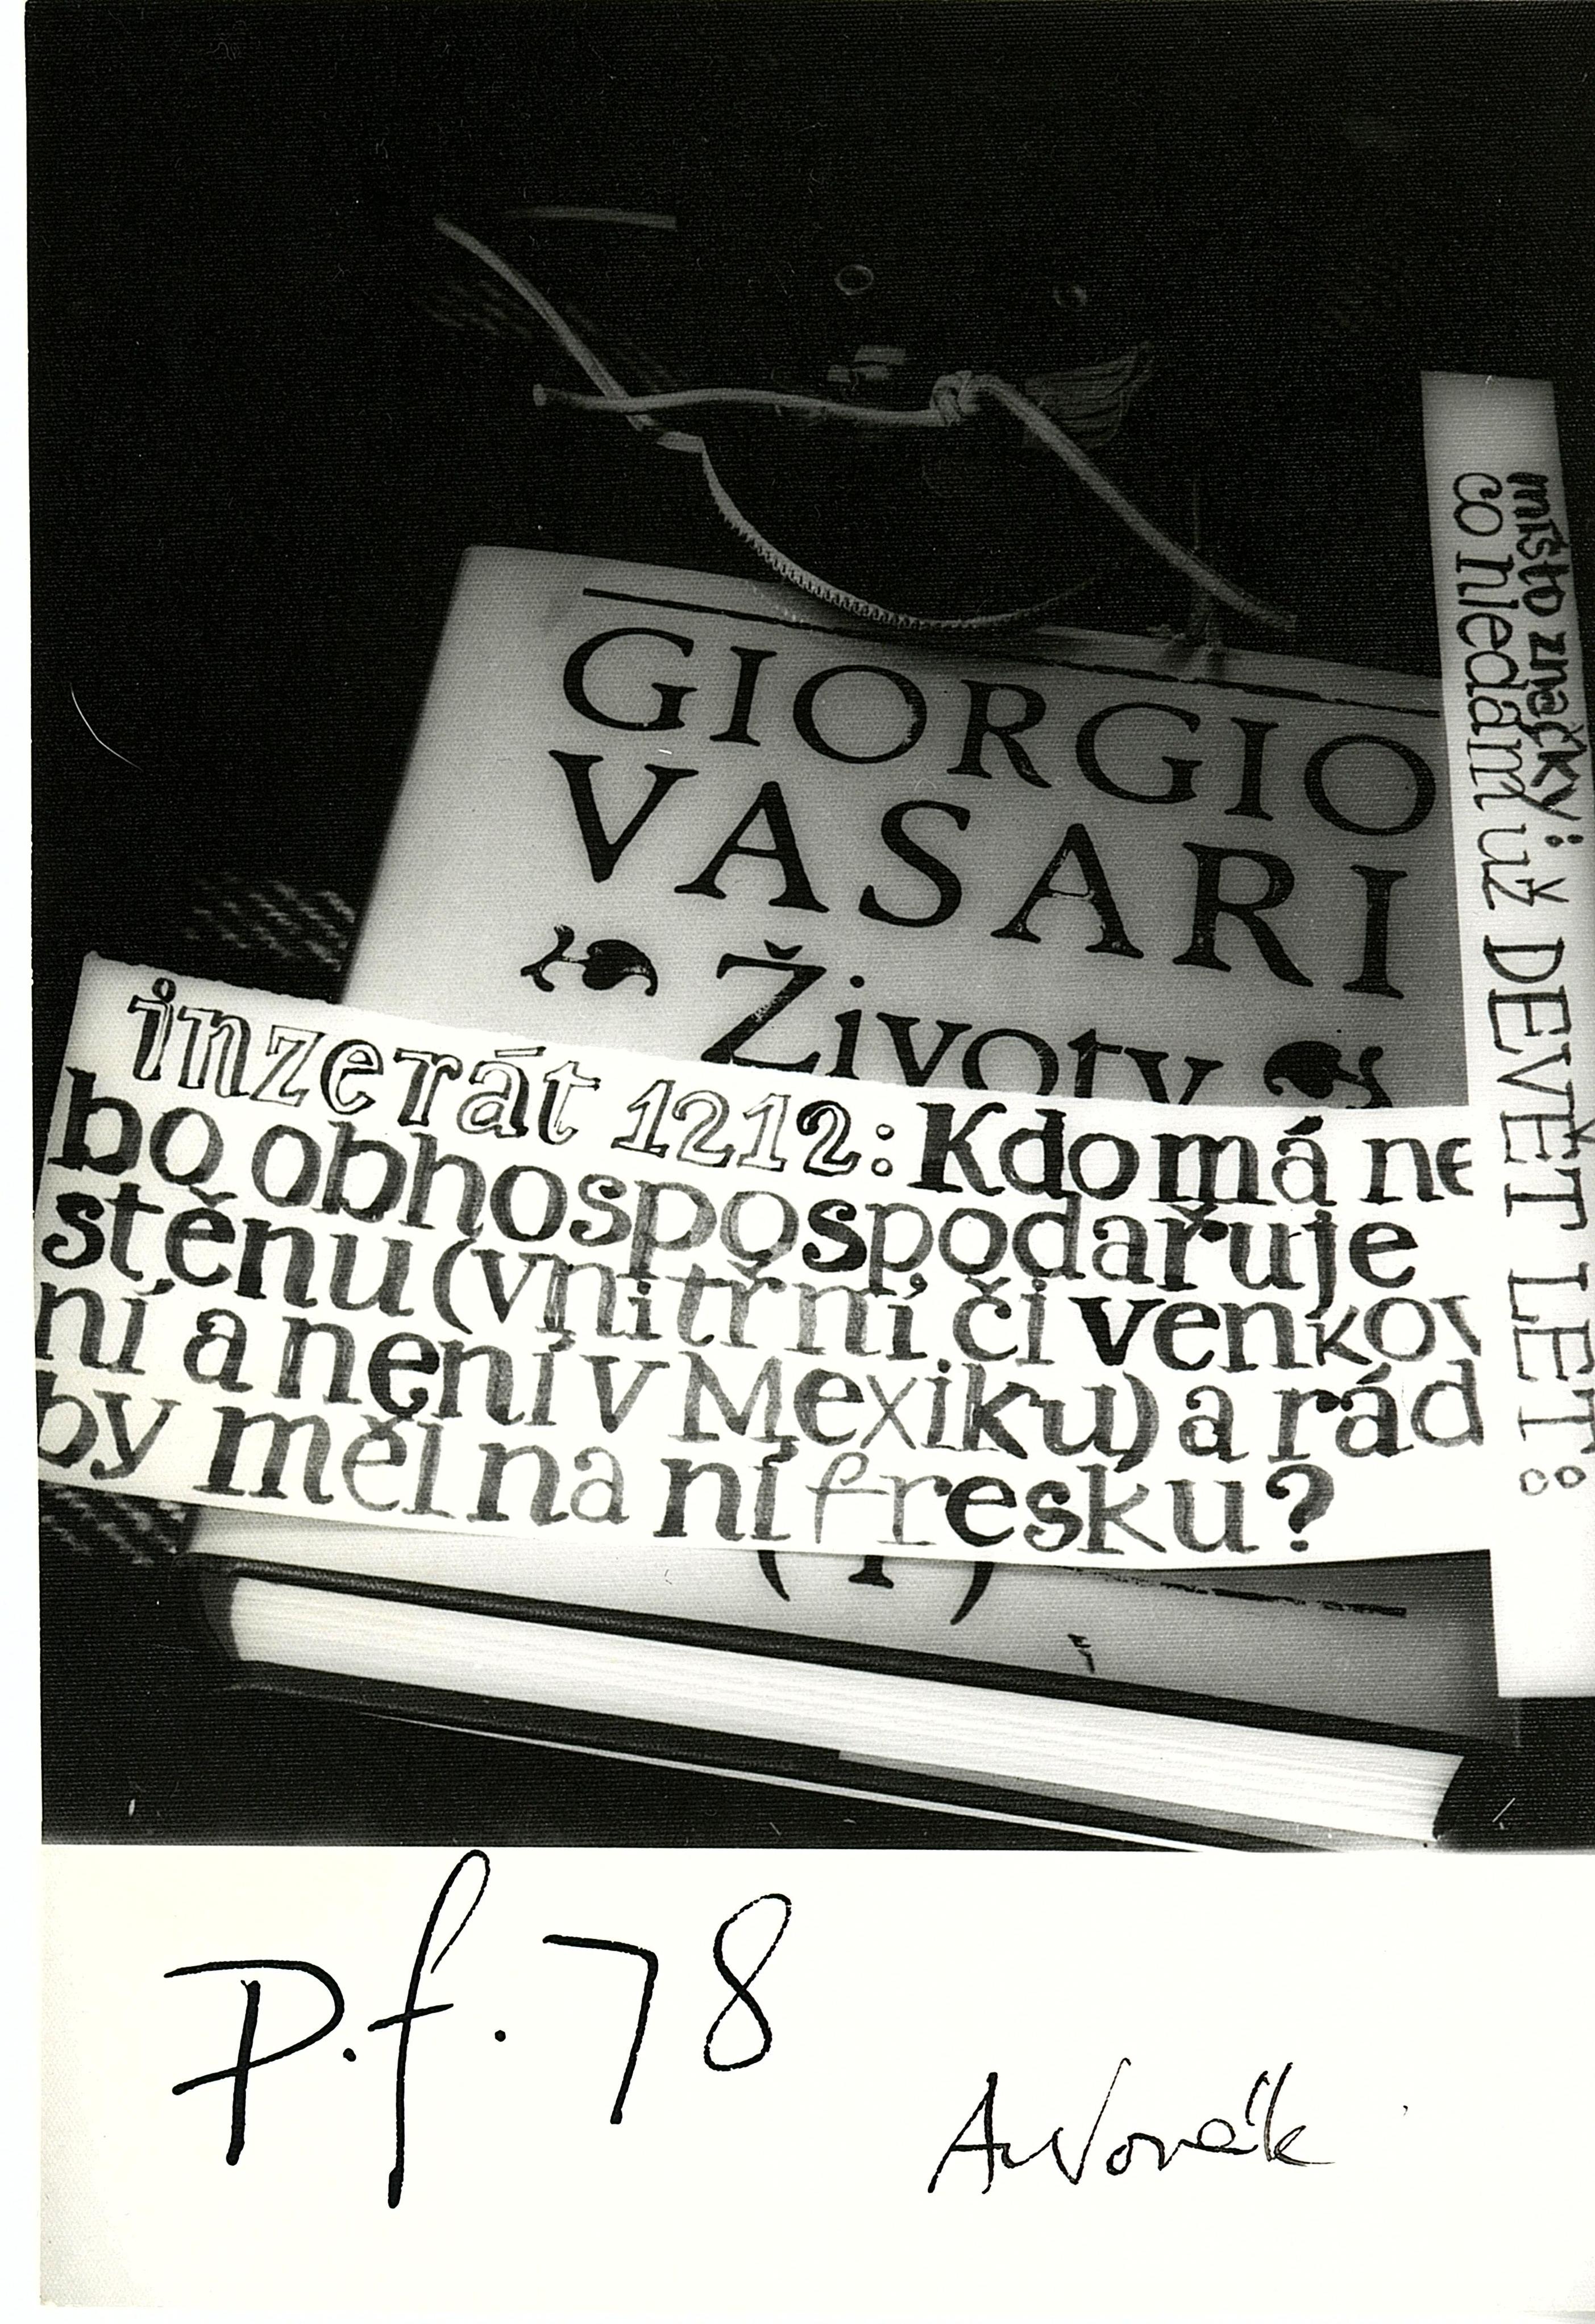 GIORGIO
VASARI
Životy
inzerát 1212: Kdo má ne
bo obhospodařuje
stěnu (vnitřní či venkov
ní a není v Mexiku) a rád
by měl na ní fresku?
(I)
místo značky:
co hledám už DEVĚT LET:
P.f. 78
A Novák